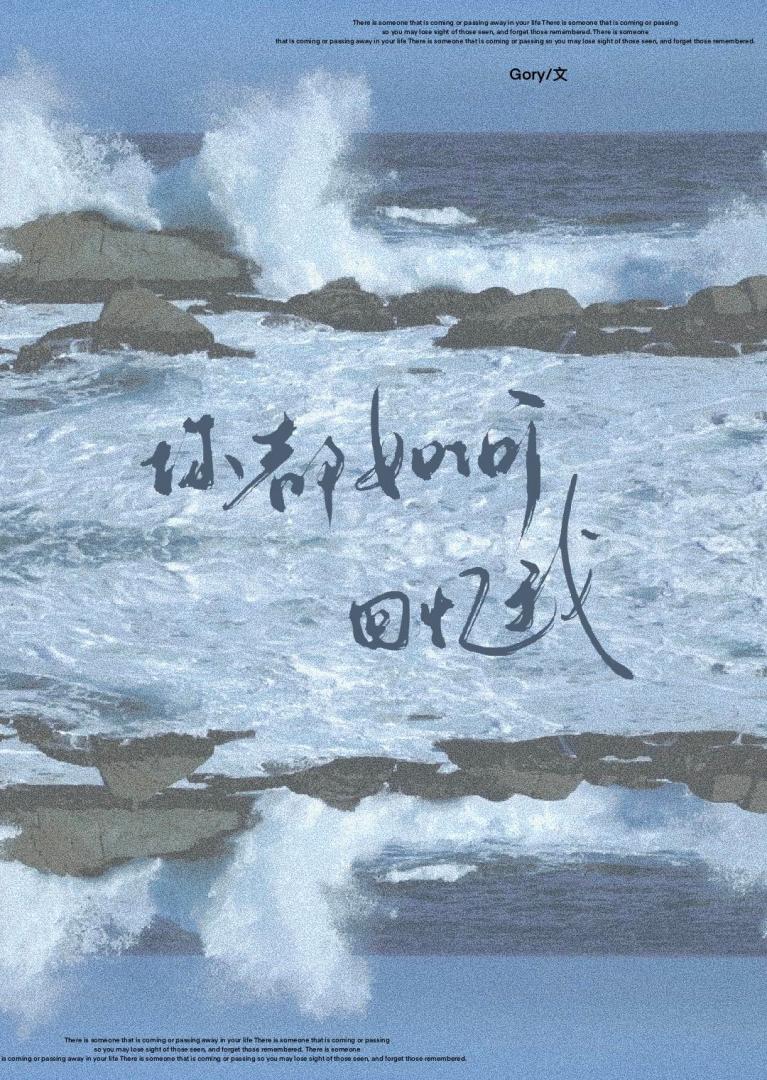 There is someone that is coming or passing away in your life There is someone that is coming or passing
so you may lose sight of those seen, and forget those remembered. There is someone
that is coming or passing away in your life There is someone that is coming or passing so you may lose sight of those seen, and forget those remembered.
Gory/文
你都如何
回忆我
There is someone that is coming or passing away in your life There is someone that is coming or passing
so you may lose sight of those seen, and forget those remembered. There is someone
is coming or passing away in your life There is someone that is coming or passing so you may lose sight of those seen, and forget those remembered.